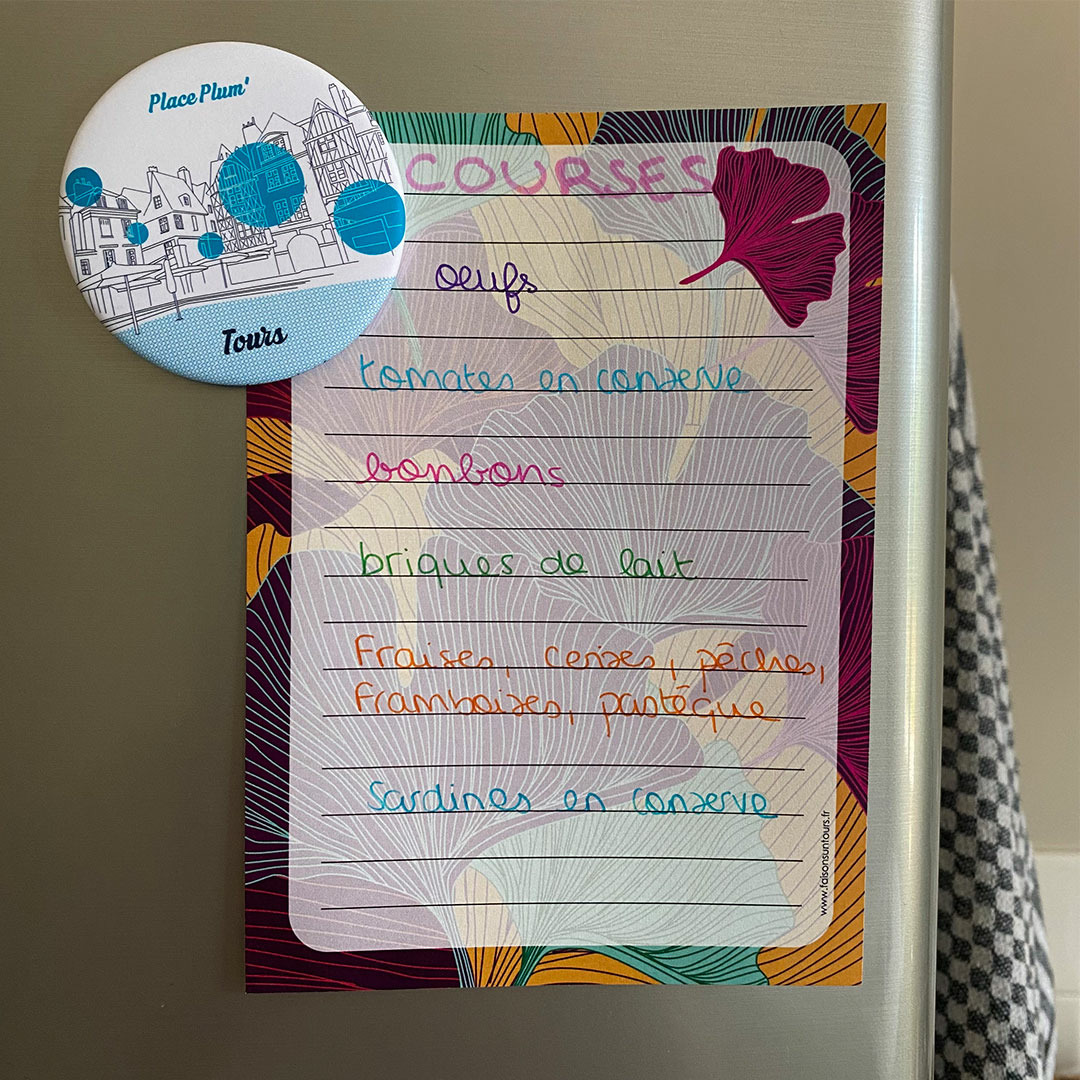 Place Plum'
Tours
COURSES
oeufs
tomates en conserve
bonbons
briques de lait
Fraises, cerises, pêches,
Framboises, pastèque
Sardines en conserve
www.faisonsuntours.fr